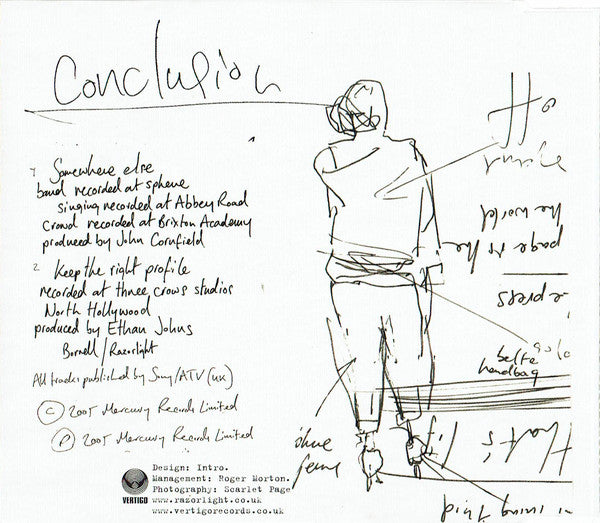 Conclusion
1 Somewhere else
band recorded at sphere
singing recorded at Abbey Road
crowd recorded at Brixton Academy
produced by John Cornfield
2 Keep the right profile
recorded at three crows studios
North Hollywood
produced by Ethan Johns
Borrell/Razorlight
All tracks published by Sony/ATV (UK)
© 2005 Mercury Records Limited
℗ 2005 Mercury Records Limited
VERTIGO
Design: Intro.
Management: Roger Morton.
Photography: Scarlet Page
www.razorlight.co.uk
www.vertigorecords.co.uk
the world
page is the
belte
handbag
that's